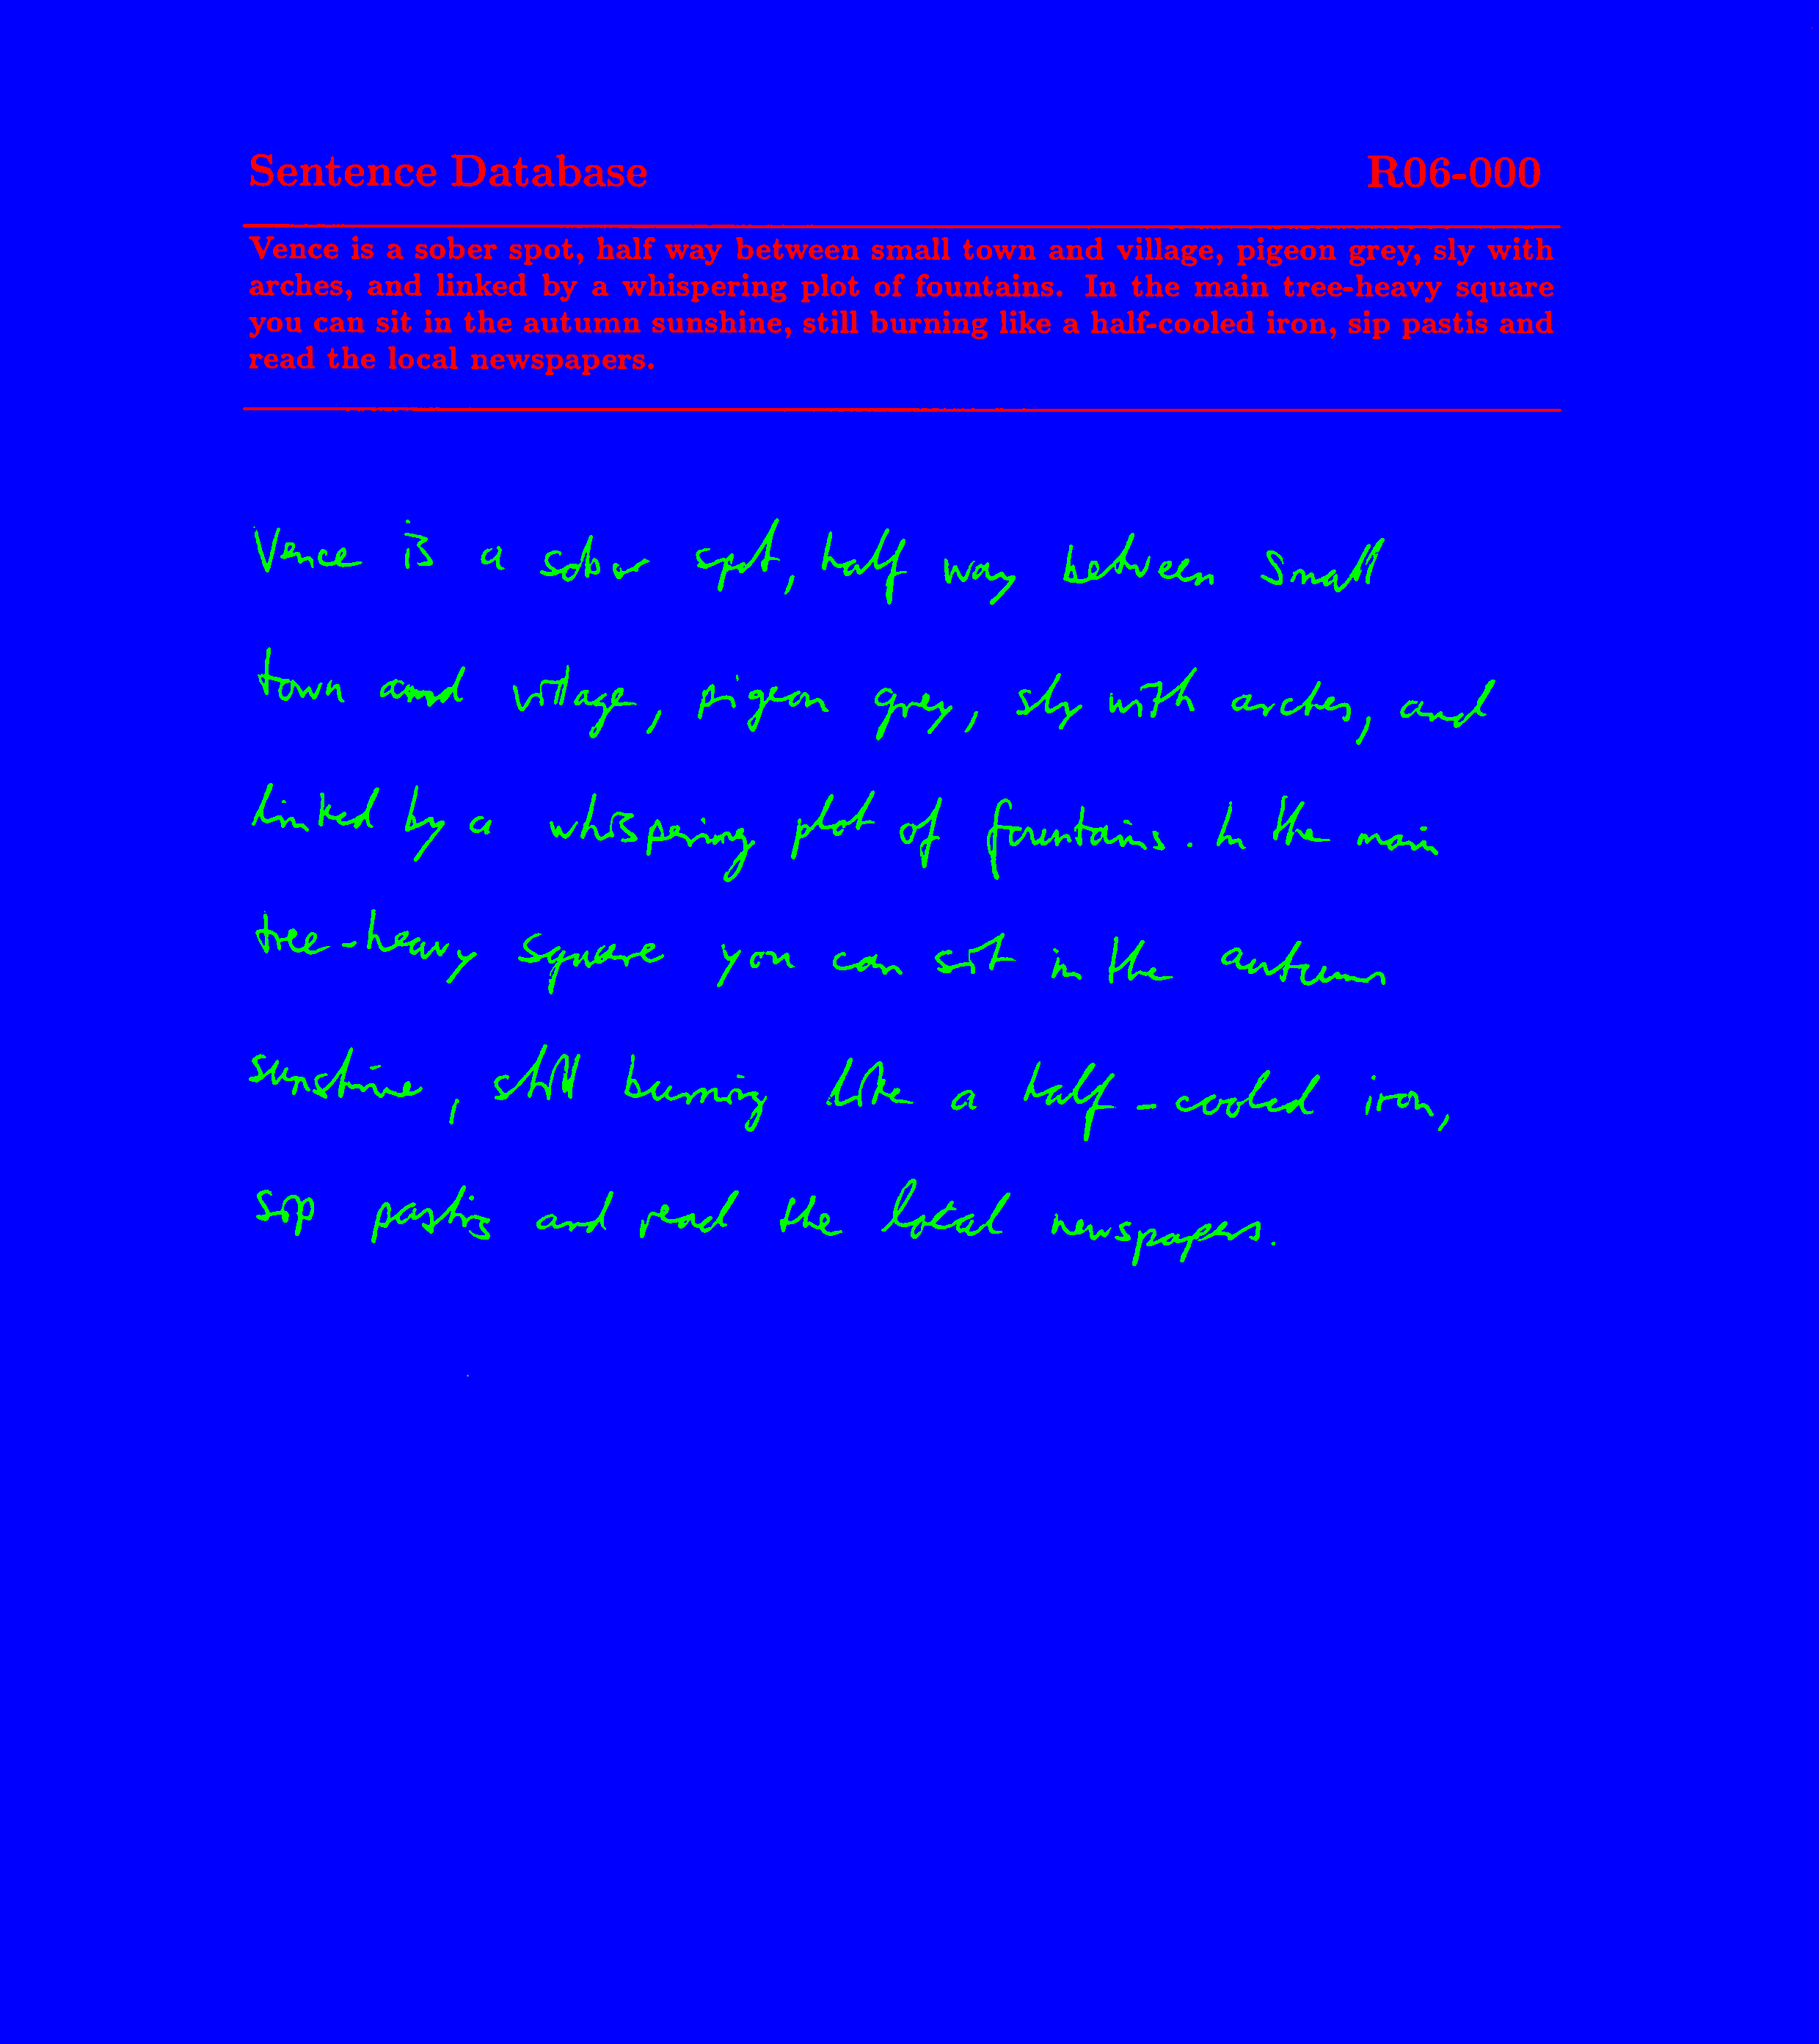 Sentence Database R06-000
Vence is a sober spot, half way between small town and village, pigeon grey, sly with
arches, and linked by a whispering plot of fountains. In the main tree-heavy square
you can sit in the autumn sunshine, still burning like a half-cooled iron, sip pastis and
read the local newspapers.
Vence is a sober spot, half way between small
town and village, pigeon grey, sly with arches, and
linked by a whispering plot of fountains. In the main
tree-heavy square you can sit in the autumn
sunshine, still burning like a half-cooled iron,
sip pastis and read the local newspapers.